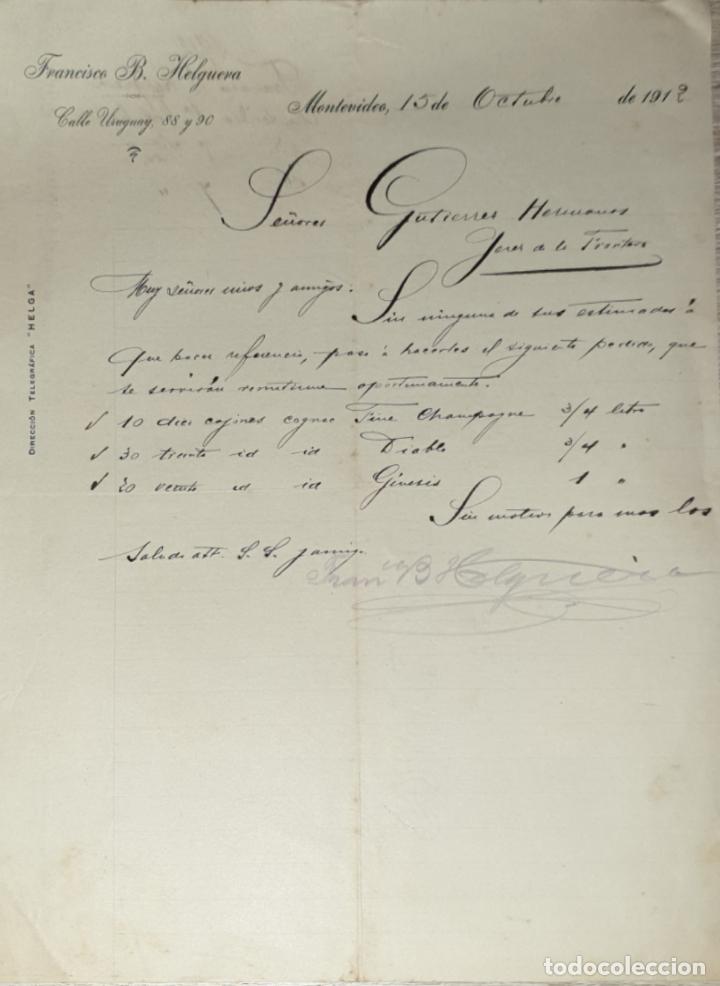 Francisco B. Helguera
Calle Uruguay, 88 y 90
Montevideo, 15 de Octubre de 1912
Señores Gutierres Hermanos
Jeres de la Frontera
DIRECCIÓN TELEGRÁFICA "HELGA"
Muy señores mios y amigos:
Sin ninguna de sus estimadas á
que hacer referencia, paso á hacerles el siguiente pedido, que
se servirán remitirme oportunamente.
✓ 10 diez cajines cognac Fine Champagne 3/4 litro
✓ 30 treinta id id Diablo 3/4 "
✓ 20 veinte id id Génesis 1 "
Sin motivo para mas los
saluda att. S. S. y amigo
Franco B Helguera
todocoleccion.net